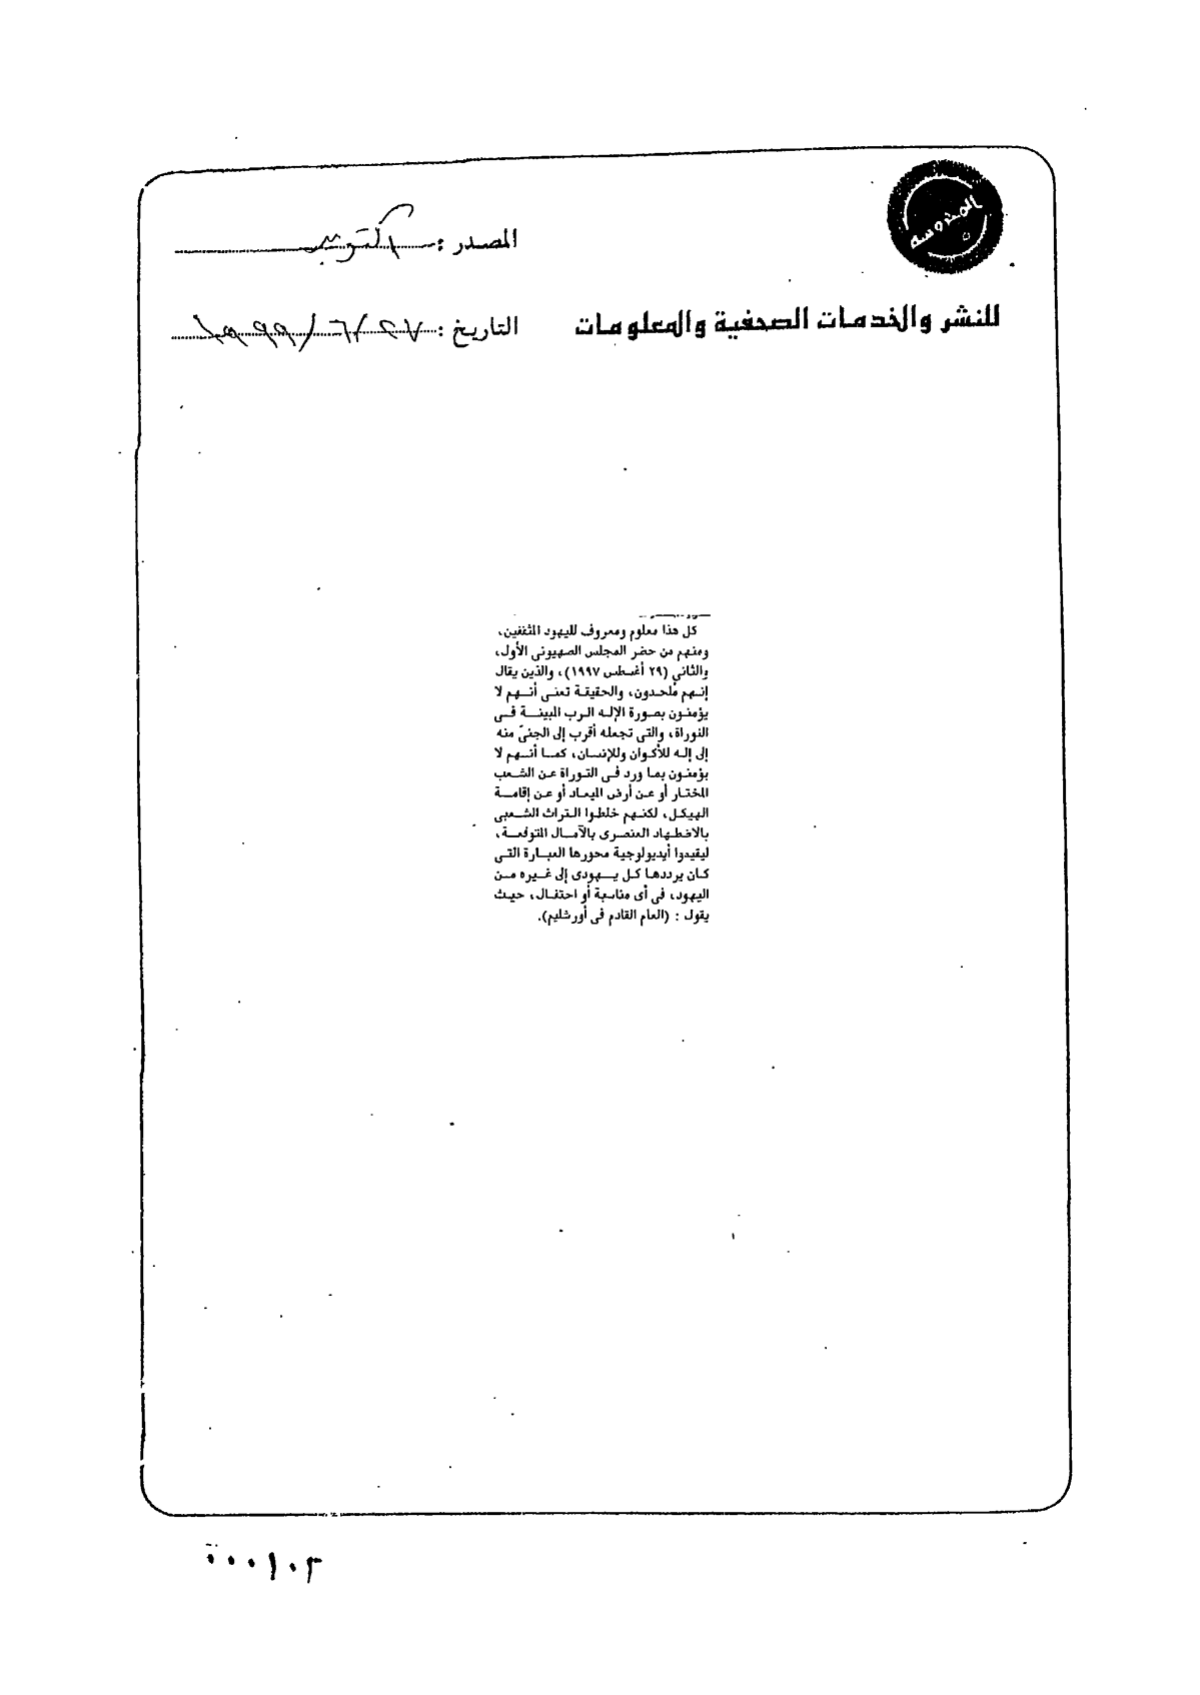 المحروسة
المصدر : أكتوبر
للنشر والخدمات الصحفية والمعلومات
التاريخ : ٢٧/٦/١٩٩٩
كل هذا معلوم ومعروف لليهود المثقفين،
ومنهم من حضر المجلس الصهيونى الأول،
والثانى (٢٩ أغسطس ١٩٩٧)، والذين يقال
إنهم مُلحدون، والحقيقة تعنى أنهم لا
يؤمنون بصورة الإله الرب المبينة فى
التوراة، والتى تجعله أقرب إلى الجنىّ منه
إلى إله للأكوان وللإنسان، كما أنهم لا
يؤمنون بما ورد فى التوراة عن الشعب
المختار أو عن أرض الميعاد أو عن إقامة
الهيكل، لكنهم خلطوا التراث الشعبى
بالاضطهاد العنصرى بالآمال المتوقعة،
ليقيموا أيديولوجية محورها العبارة التى
كان يرددها كل يهودى إلى غيره من
اليهود، فى أى مناسبة أو احتفال، حيث
يقول : (العام القادم فى أورشليم).